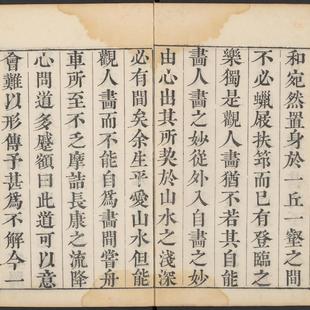 和宛然置身於一丘一壑之間
不必蠟屐扶筇而已有登臨之
樂獨是觀人畵猶不若其自能
畵人畵之妙從外入自畵之妙
由心出其所契於山水之淺深
必有間矣余生平愛山水但能
觀人畵而不能自爲畵間嘗舟
車所至不乏摩詰長康之流降
心問道多蹙額曰此道可以意
會難以形傳予甚爲不解今一